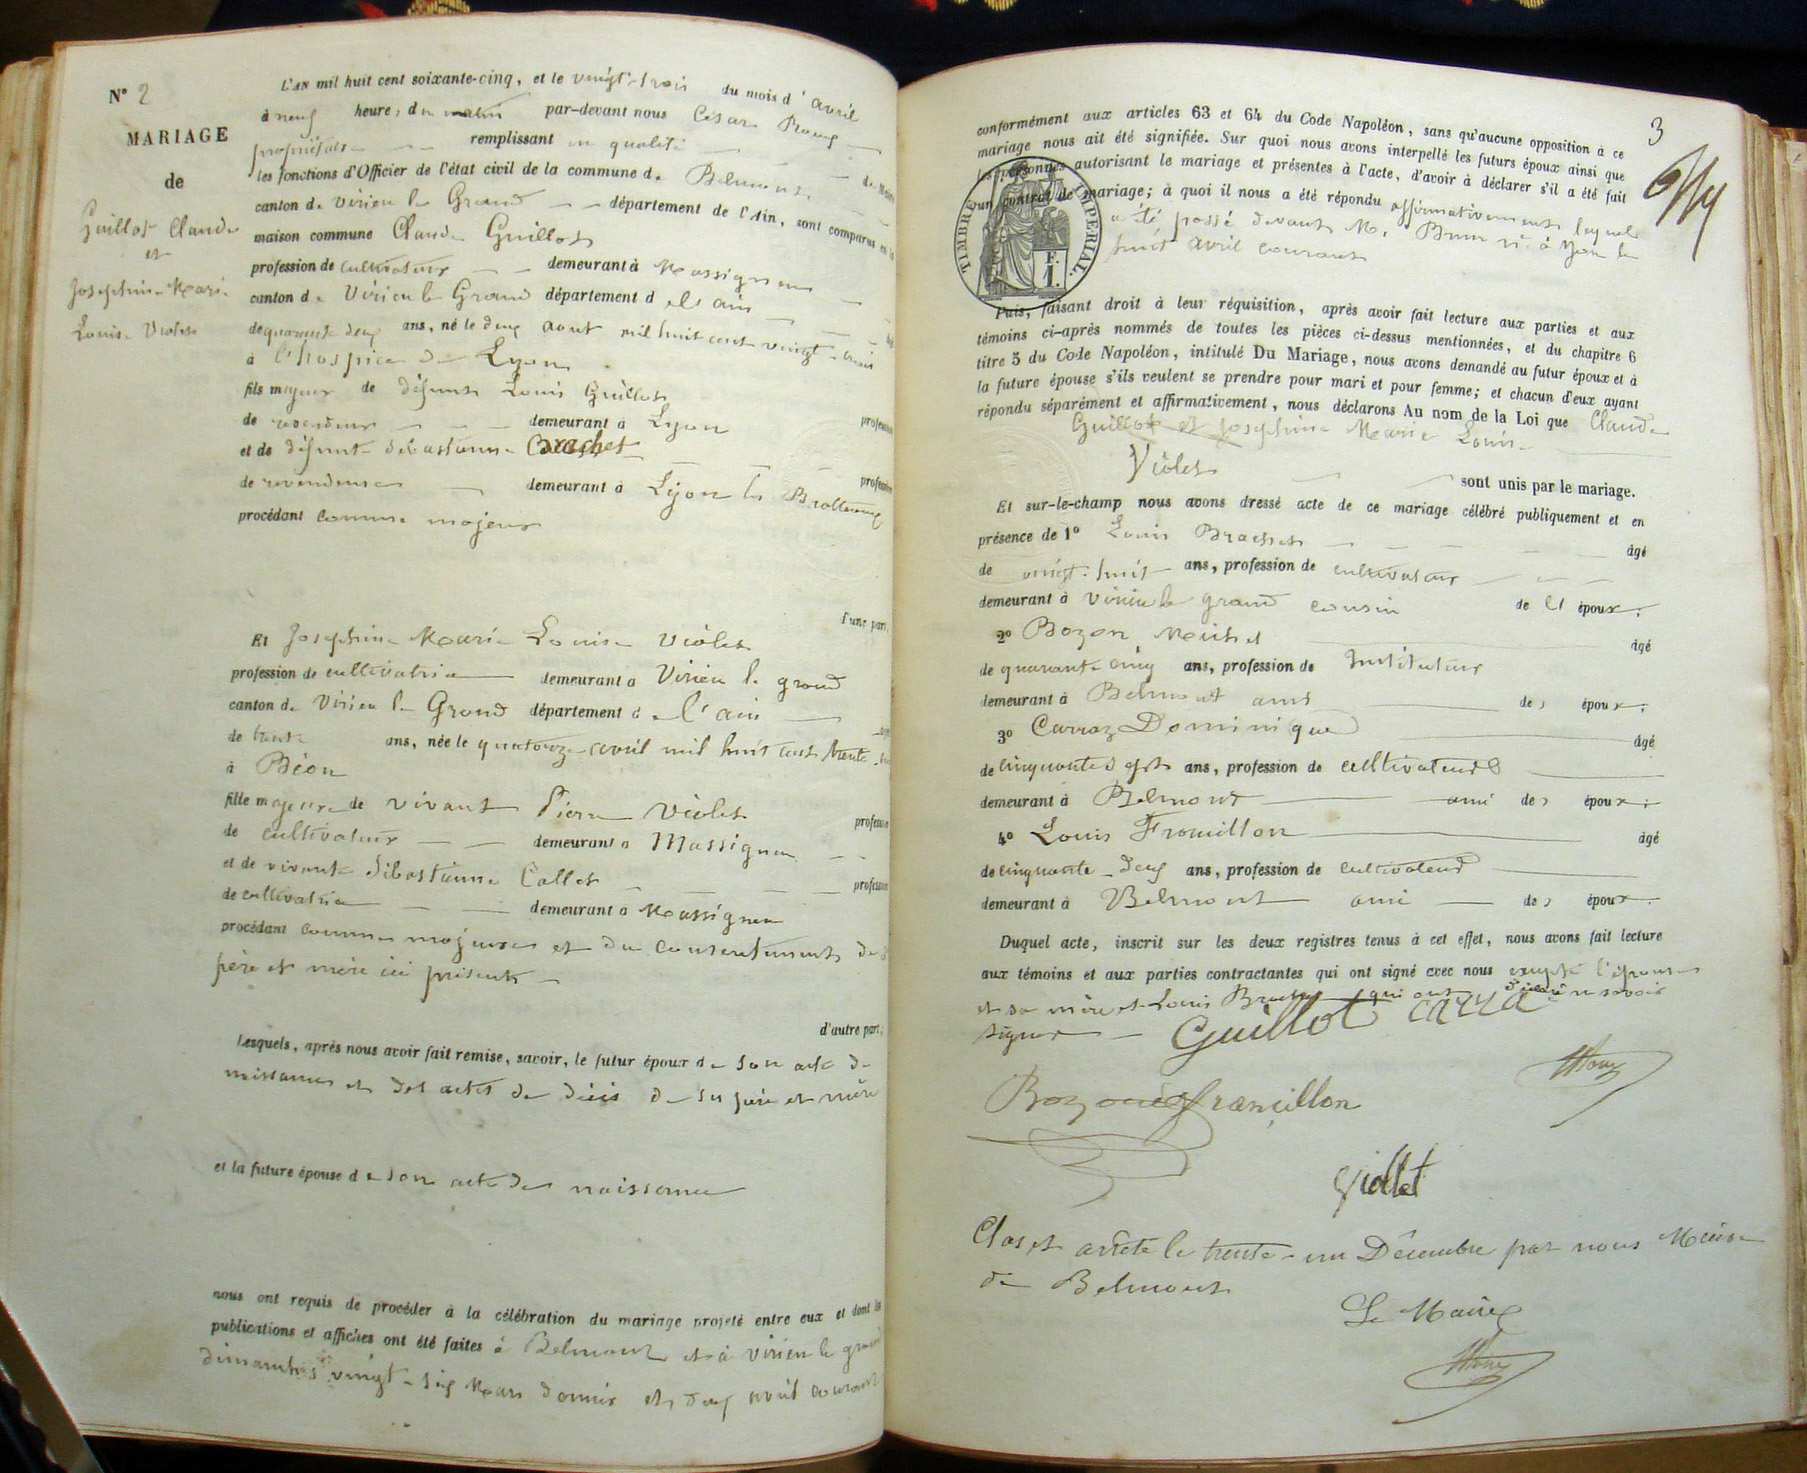 N° 2
MARIAGE
de
Guillot Claude
et
Josephine Marie
Louise Violet
L'AN mil huit cent soixante-cinq, et le vingt-trois du mois d'avril
à neuf heures du matin par-devant nous César
propriétaire remplissant en qualité de Maire
les fonctions d'Officier de l'état civil de la commune de Belmont,
canton de Virieu le Grand département de l'Ain, sont comparus en la
maison commune Claude Guillot
profession de cultivateur demeurant à Massignieu
canton de Virieu le Grand département de l'ain
de quarante deux ans, né le deux aout mil huit cent vingt-trois
à l'hospice de Lyon
fils majeur de défunt Louis Guillot
profession
de revendeur demeurant à Lyon
et de défunte Sébastienne Brachet
profession
de revendeuse demeurant à Lyon les Brotteaux
procédant comme majeur
d'une part,
Et Josephine Marie Louise Violet
profession de cultivatrice demeurant à Virieu le grand
canton de Virieu le Grand département de l'ain
de trente ans, née le quatorze avril mil huit cent trente
à Béon
fille majeure de vivant Pierre Violet
profession
de cultivateur demeurant à Massignieu
et de vivante Sébastienne Callet
profession
de cultivatrice demeurant à Massignieu
procédant comme majeure et du consentement de ses
père et mère ici présents
d'autre part;
Lesquels, après nous avoir fait remise, savoir, le futur époux de son acte de
naissance et des actes de décès de ses père et mère
et la future épouse de son acte de naissance
nous ont requis de procéder à la célébration du mariage projeté entre eux et dont les
publications et affiches ont été faites à Belmont et à Virieu le grand
dimanches vingt-six Mars dernier et deux avril courant
3
conformément aux articles 63 et 64 du Code Napoléon, sans qu'aucune opposition à ce
mariage nous ait été signifiée. Sur quoi nous avons interpellé les futurs époux ainsi que
les personnes autorisant le mariage et présentes à l'acte, d'avoir à déclarer s'il a été fait
un contrat de mariage; à quoi il nous a été répondu affirmativement lequel
a été passé devant Me Brun à le
huit avril courant
TIMBRE IMPÉRIAL
F. 1.
Puis, faisant droit à leur réquisition, après avoir fait lecture aux parties et aux
témoins ci-après nommés de toutes les pièces ci-dessus mentionnées, et du chapitre 6
titre 5 du Code Napoléon, intitulé Du Mariage, nous avons demandé au futur époux et à
la future épouse s'ils veulent se prendre pour mari et pour femme; et chacun d'eux ayant
répondu séparément et affirmativement, nous déclarons Au nom de la Loi que Claude
Guillot et Josephine Marie Louise
Violet
sont unis par le mariage.
Et sur-le-champ nous avons dressé acte de ce mariage célébré publiquement et en
présence de 1° Louis Brachet âgé
de vingt-huit ans, profession de cultivateur
demeurant à Virieu le grand cousin de l'époux;
2° Bozon Michel âgé
de quarante cinq ans, profession de Instituteur
demeurant à Belmont ami des époux;
3° Carraz Dominique âgé
de cinquante sept ans, profession de cultivateur
demeurant à Belmont ami des époux;
4° Louis Francillon âgé
de cinquante-deux ans, profession de cultivateur
demeurant à Belmont ami des époux.
Duquel acte, inscrit sur les deux registres tenus à cet effet, nous avons fait lecture
aux témoins et aux parties contractantes qui ont signé avec nous excepté l'épouse
et sa mère et Louis Brachet qui ont déclaré ne savoir
signer
Guillot carra
Bozon francillon
Violet
Clos et arrêté le trente-un Décembre par nous Maire
de Belmont
Le Maire